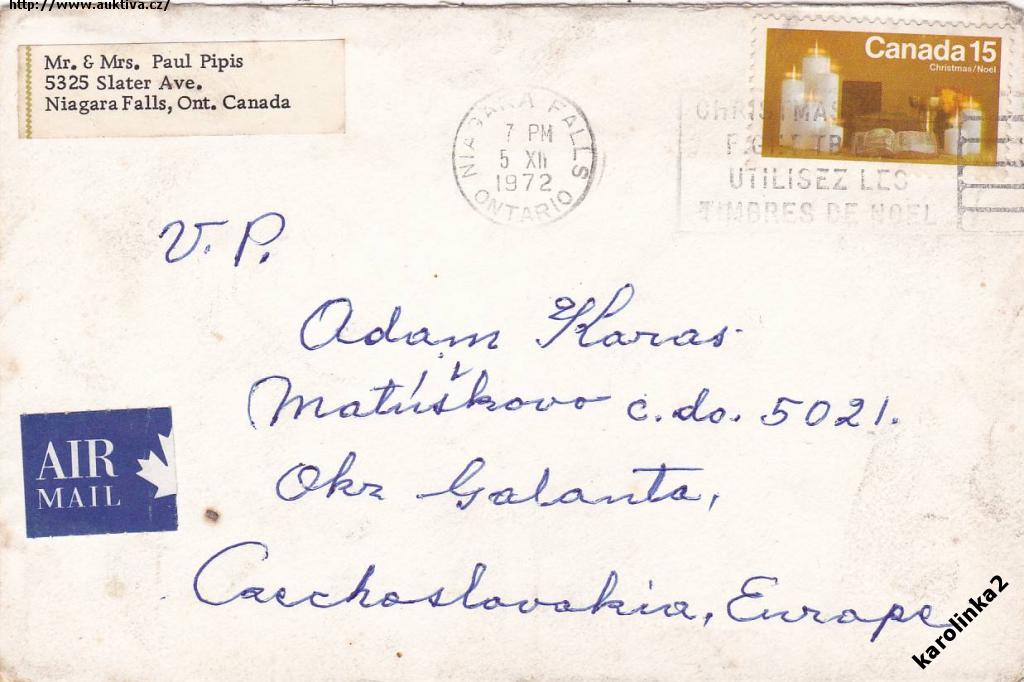 http://www.auktiva.cz/
Mr. & Mrs. Paul Pipis
5325 Slater Ave.
Niagara Falls, Ont. Canada
NIAGARA FALLS
7 PM
5 XII
1972
ONTARIO
Canada 15
Christmas/Noël
CHRISTMAS
UTILISEZ LES
TIMBRES DE NOEL
V. P.
Adam Karas
Matúškovo c. do. 5021.
Okr Galanta,
Czechoslovakia, Europe
AIR
MAIL
karolinka2